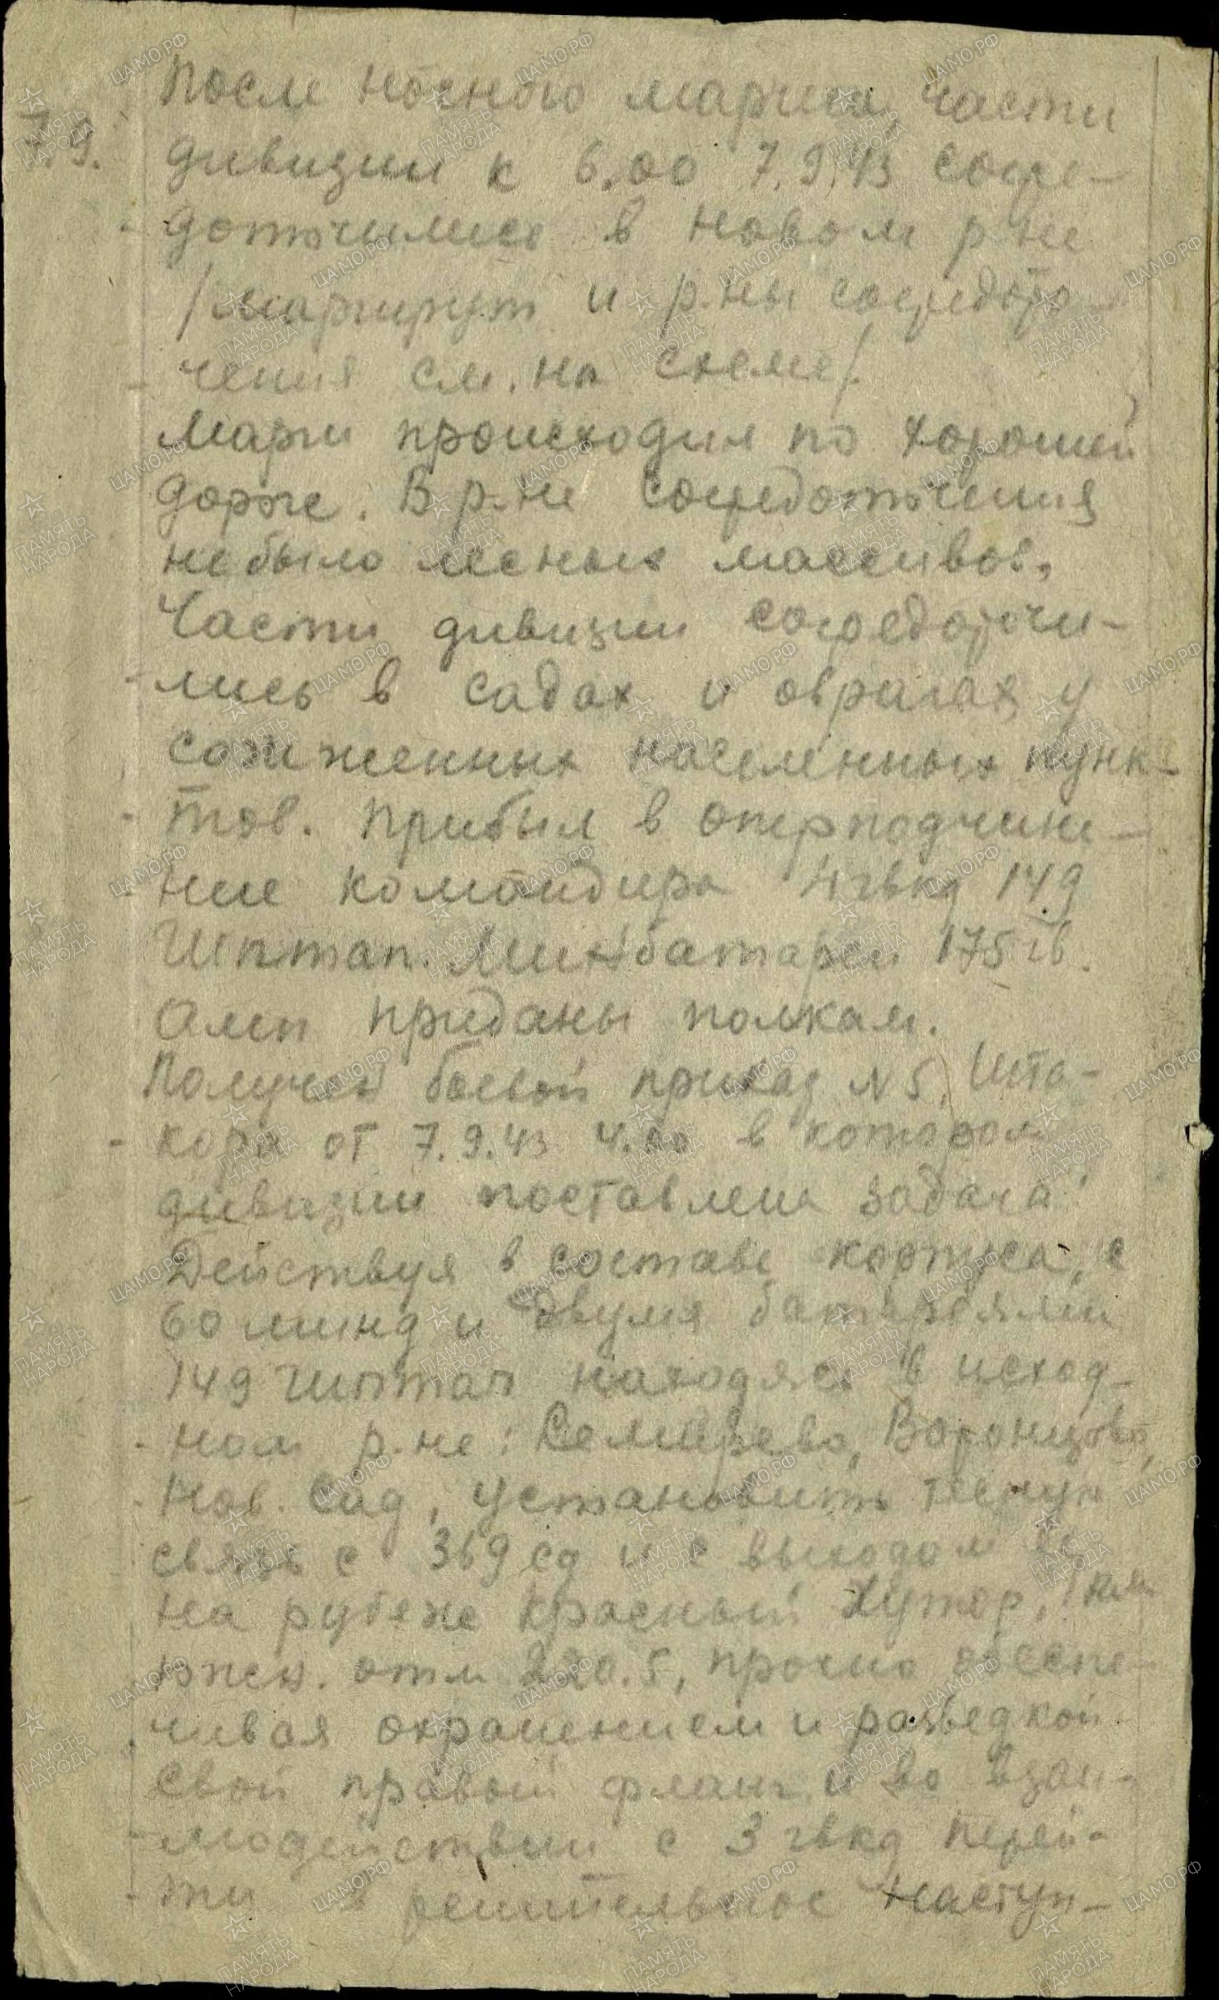 После ночного марша, части
7.9. дивизии к 6.00 7.9.43 сосре-
доточились в новом р-не
/маршрут и р-ны сосредото-
чения см. на схеме/.
Марш происходил по хорошей
дороге. В р-не сосредоточения
не было лесных массивов.
Части дивизии сосредоточи-
лись в садах и оврагах у
сожженных населенных пунк-
тов. Прибыл в оперподчине-
ние командира 4 гвкд 149
гиптап. Минбатареи 175 гв.
Амп приданы полкам.
Получен боевой приказ N 5 Шта-
кора от 7.9.43 4.00 в котором
дивизии поставлена задача:
Действуя в составе корпуса, с
60 минд и двумя батареями
149 гиптап находясь в исход-
ном р-не: Воронцово,
Нов. Сад, установить тесную
связь с 369 сд и с выходом ее
на рубеже Красный Хутор, 1 км
южн. отм 220.5, прочно обеспе-
чивая охранением и разведкой
свой правый фланг и во взаи-
модействии с 3 гвкд перей-
ти в решительное наступ-